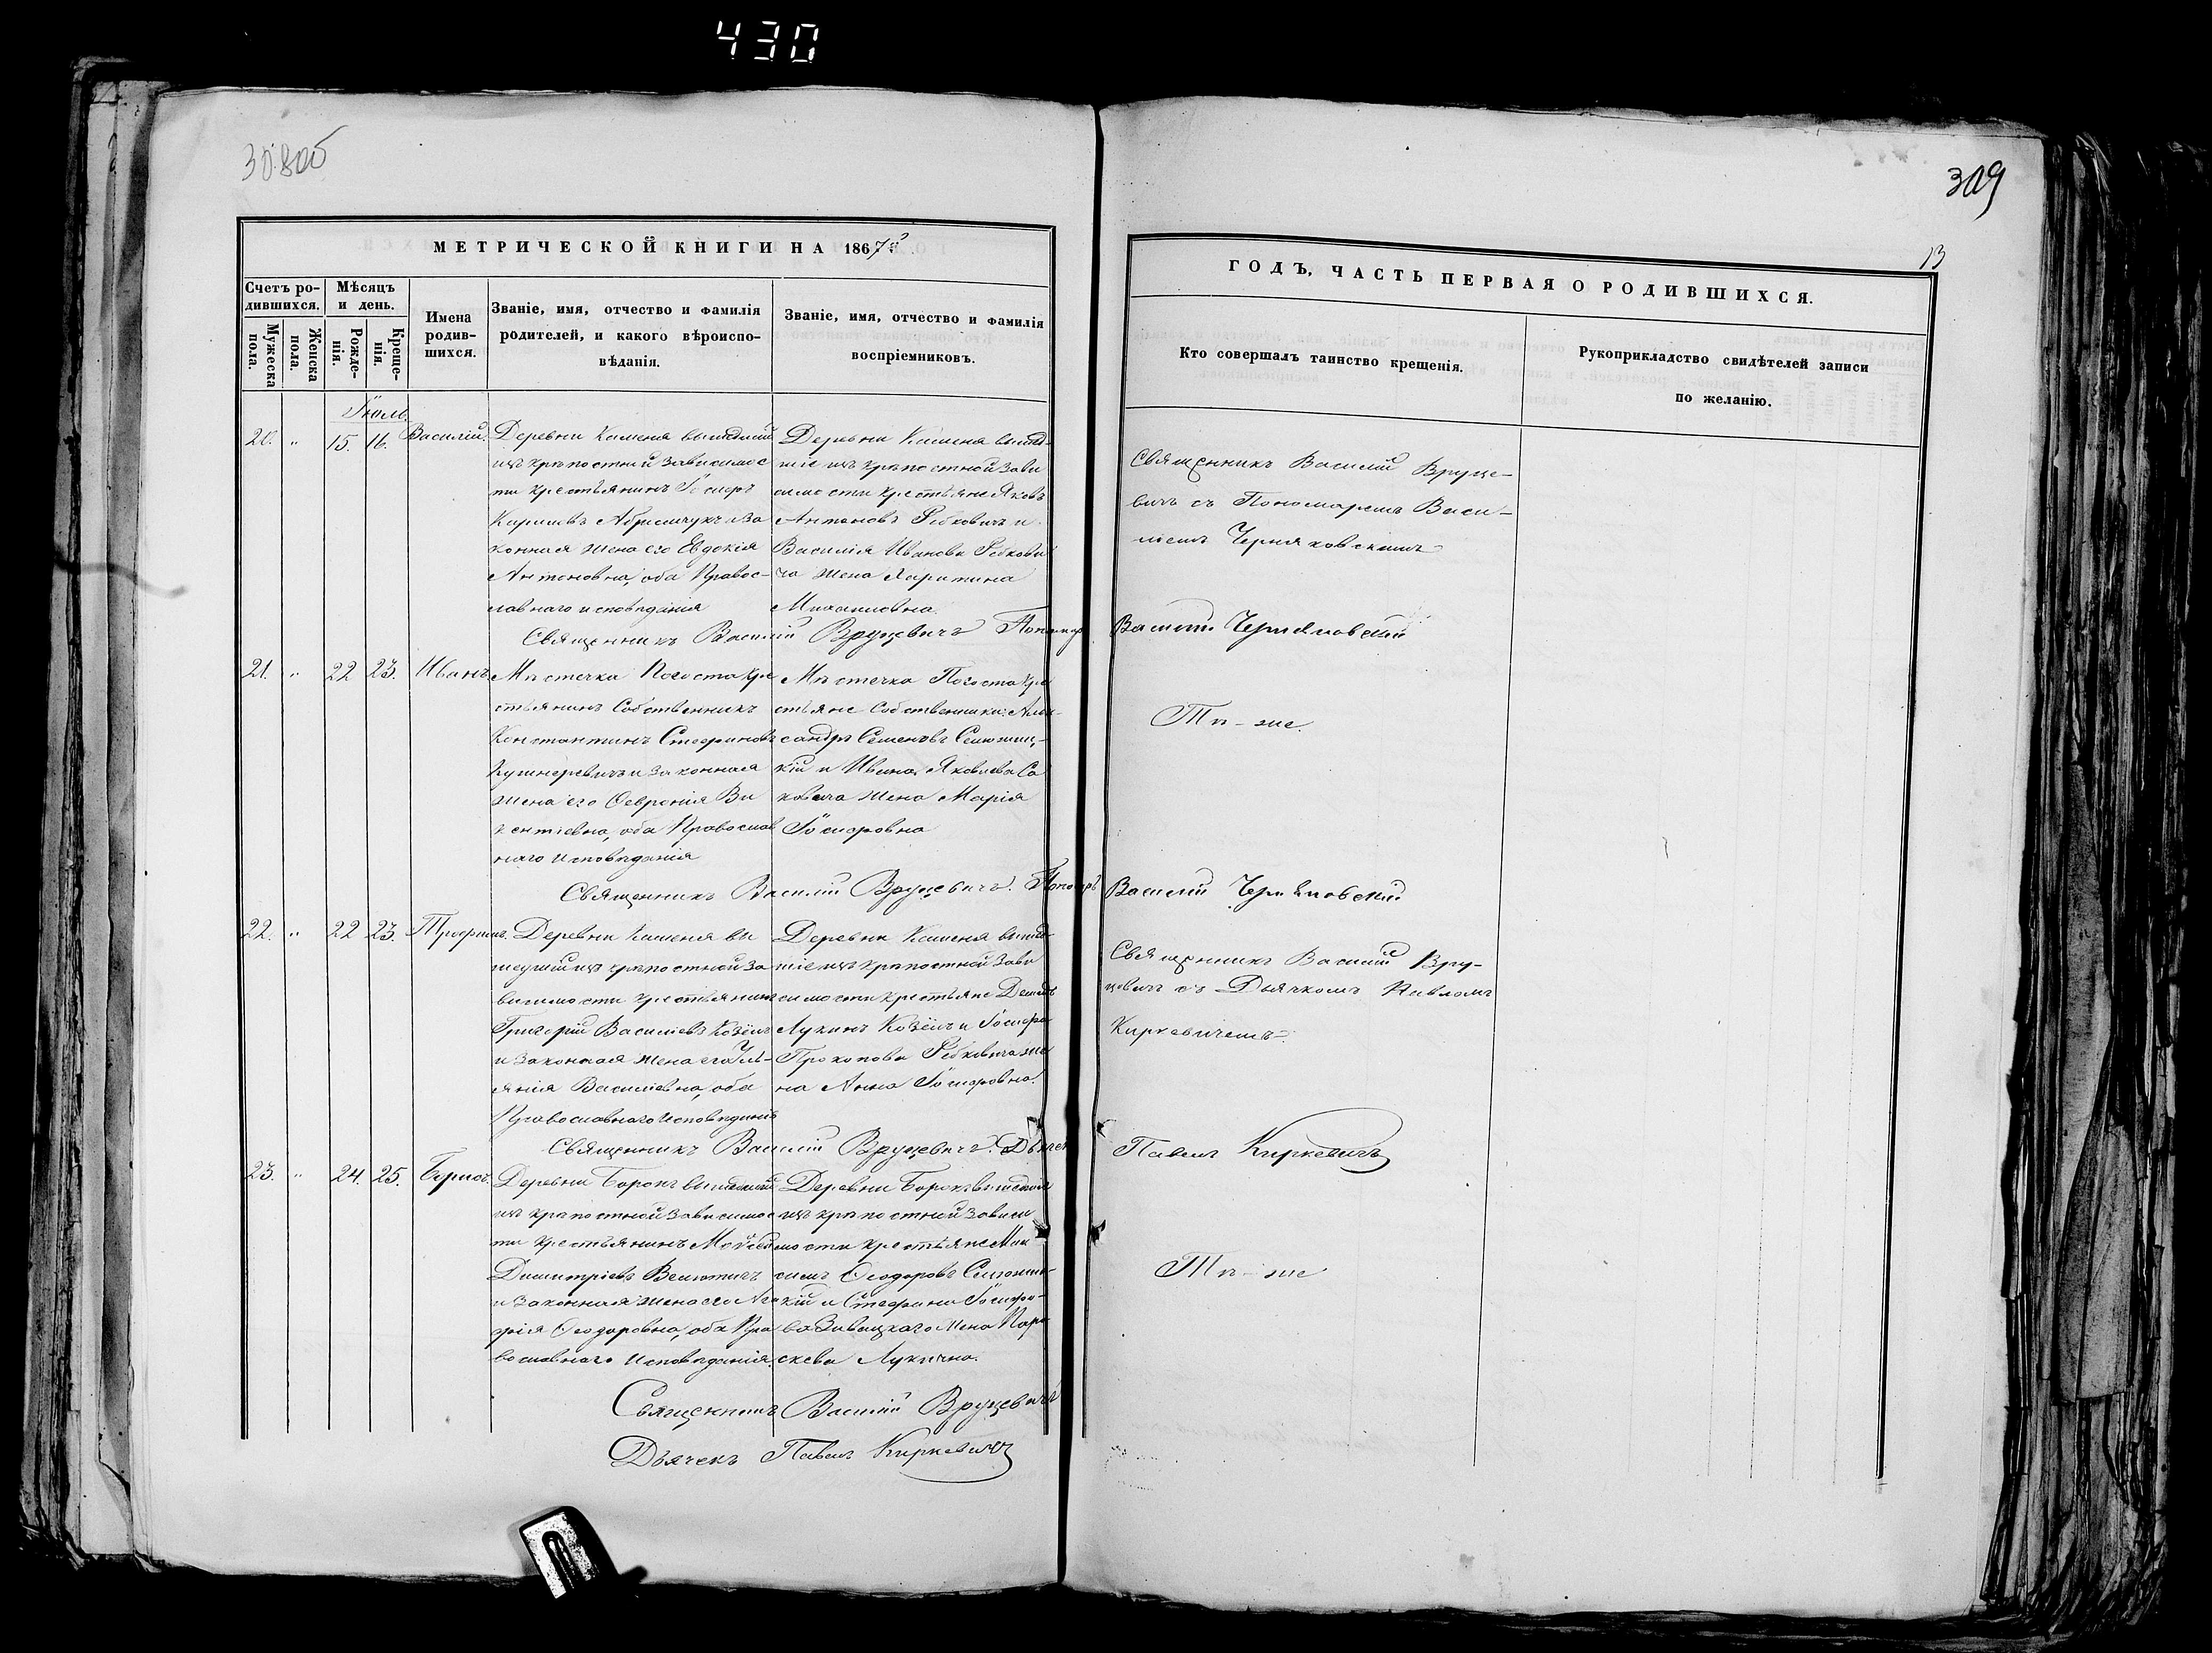 430
309
13
МЕТРИЧЕСКОЙ КНИГИ НА 1867
ГОДЪ, ЧАСТЬ ПЕРВАЯ О РОДИВШИХСЯ.
Счетъ ро-
дившихся.
Мужеска
пола.
Женска
пола.
Мѣсяцъ
и день.
Рожде-
нія.
Креще-
нія.
Имена
родив-
шихся.
Званіе, имя, отчество и фамилія
родителей, и какого вѣроиспо-
вѣданія.
Званіе, имя, отчество и фамилія
воспріемниковъ.
Кто совершалъ таинство крещенія.
Рукоприкладство свидѣтелей записи
по желанію.
Іюль.
20. " 15. 16. Василій.
Деревни Каменя вышедшій
изъ крѣпостной зависимос
ти крестьянинъ Іосифъ
Кириловъ Абрамчукъ и за
конная жена его Евдокія
Антоновна, оба Правос-
лавнаго исповѣданія
Деревни Каменя вышед-
шіе изъ крѣпостной зави
симости крестьяне Яковъ
Антоновъ Рабковичъ и
Василія Иванова Рабкови
ча жена Харитина
Михаиловна.
Священникъ Василій Вруце-
вичъ съ Пономаремъ Васи-
ліемъ Черняковскимъ
Священникъ Василій Вруцевичъ Пономарь Василій Черняковскій
21. " 22 23. Иванъ
Мѣстечка Погоста кре
стьянинъ Собственникъ
Константинъ Стефановъ
Кушнеревичъ и законная
жена его Феврония Ви
кентіевна, оба Православ
наго исповѣданія
Мѣстечка Погоста кре
стьяне Собственники: Алек-
сандръ Семеновъ
кій и Ивана Яковлева Са
ковича жена Марія
Іосифовна
Тѣ-же.
Священникъ Василій Вруцевичъ. Пономарь Василій Черняковскій
22. " 22 23. Трофимъ.
Деревни Каменя вы
шедшій изъ крѣпостной за
висимости крестьянинъ
Григорій Василіевъ Козёлъ
и законная жена его Уль-
янія Василіевна, оба
Православнаго исповѣданія
Деревни Каменя вышед-
шіе изъ крѣпостной зави
симости крестьяне Демидъ
Лукинъ Козёлъ и Іосифа
Прокопова Рабковича же
на Анна Іосифовна.
Священникъ Василій Вру-
цевичъ съ Дьячкомъ Павломъ
Киркевичемъ
Священникъ Василій Вруцевичъ. Дьячекъ Павелъ Киркевичъ
23. " 24. 25. Борисъ.
Деревни Борокъ вышедшій
изъ крѣпостной зависимос
ти крестьянинъ Мойсей
Димитріевъ Велютичъ
и законная жена его Ага
фія Феодоровна, оба Пра
вославнаго исповѣданія.
Деревни Борокъ вышедшіе
изъ крѣпостной зависи
мости крестьяне Мак
симъ Феодоровъ
кій и Стефана Іосифо-
ва Завацкаго жена Пара
скева Лукична.
Тѣ-же
Священникъ Василій Вруцевичъ
Дьячекъ Павелъ Киркевичъ